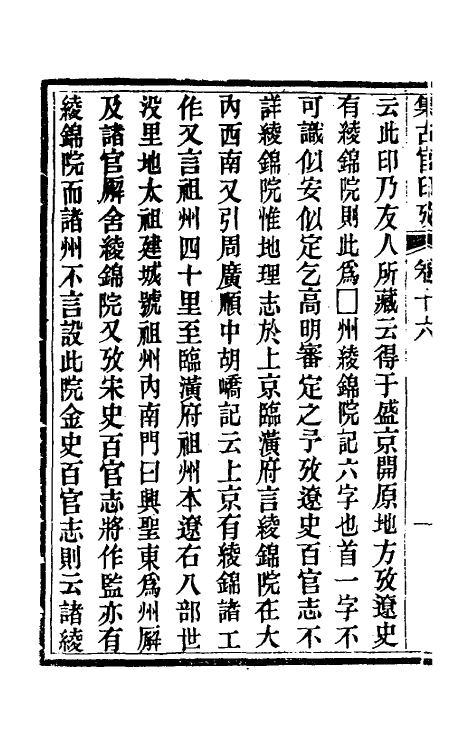 集古官印攷 卷十六 一
云此印乃友人所藏云得于盛京開原地方攷遼史
有綾錦院則此爲□州綾錦院記六字也首一字不
可識似安似定乞高明審定之予攷遼史百官志不
詳綾錦院惟地理志於上京臨潢府言綾錦院在大
內西南又引周廣順中胡嶠記云上京有綾錦諸工
作又言祖州四十里至臨潢府祖州本遼右八部世
没里地太祖建城號祖州內南門曰興聖東爲州廨
及諸官廨舍綾錦院又攷宋史百官志將作監亦有
綾錦院而諸州不言設此院金史百官志則云諸綾